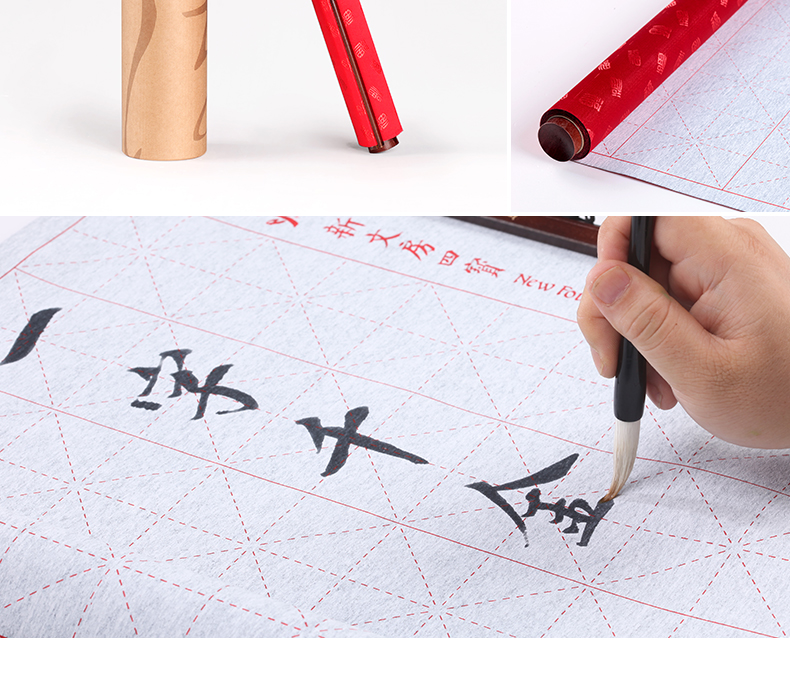 新文房四寳 New Fo
一字千金